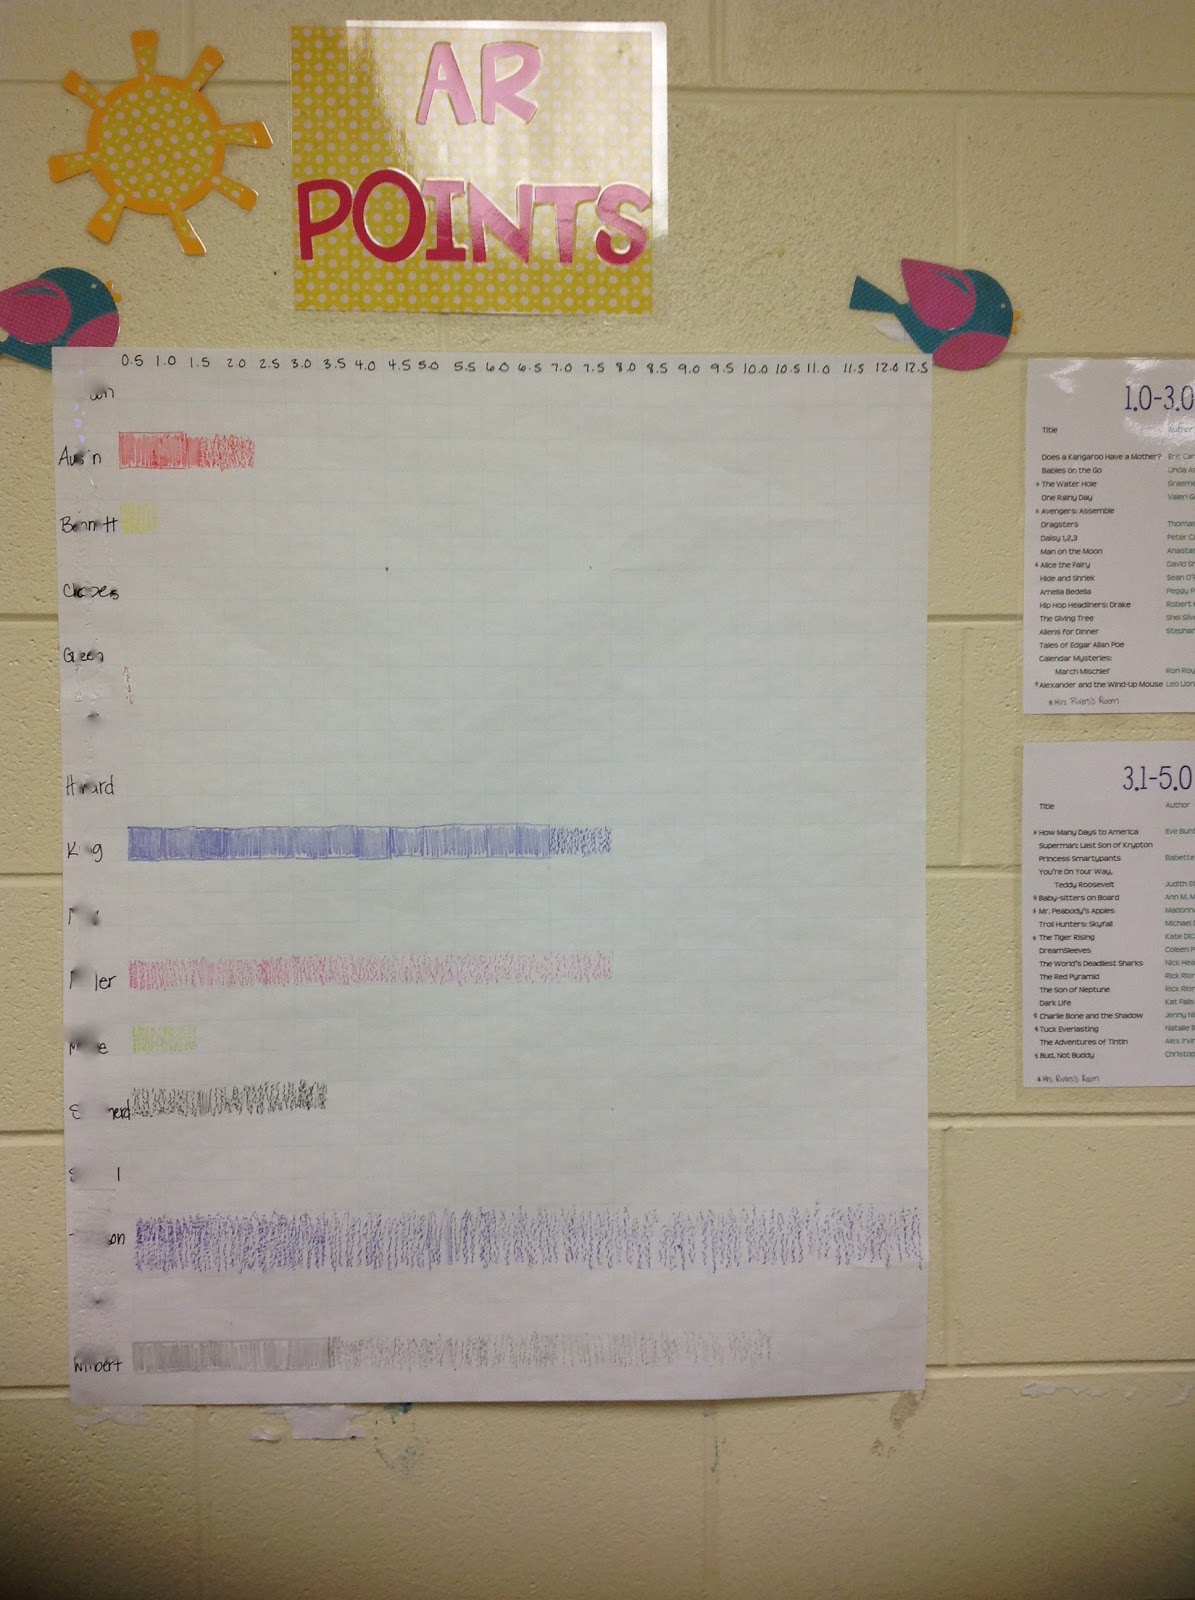 AR
POINTS
0.5 1.0 1.5 2.0 2.5 3.0 3.5 4.0 4.5 5.0 5.5 6.0 6.5 7.0 7.5 8.0 8.5 9.0 9.5 10.0 10.5 11.0 11.5 12.0 12.5
1.0-3.0
Title Author
Does a Kangaroo Have a Mother? Eric Car
Babies on the Go Linda A
* The Water Hole Graeme
One Rainy Day Valeri G
* Avengers: Assemble
Dragsters Thomas
Daisy 1,2,3 Peter C
Man on the Moon Anastas
* Alice the Fairy David S
Hide and Shriek Sean O'
Amelia Bedelia Peggy P
Hip Hop Headliners: Drake Robert
The Giving Tree Shel Silv
Aliens for Dinner Stephan
Tales of Edgar Allan Poe
Calendar Mysteries:
March Mischief Ron Roy
* Alexander and the Wind-Up Mouse Leo Lion
* Mrs. Rivers's Room
3.1-5.0
Title Author
* How Many Days to America Eve Bunt
Superman: Last Son of Krypton
Princess Smartypants Babette
You're On Your Way,
Teddy Roosevelt Judith S
* Baby-sitters on Board Ann M. M
* Mr. Peabody's Apples Madonn
Troll Hunters: Skyfall Michael
* The Tiger Rising Kate DiC
DreamSleeves Coleen P
The World's Deadliest Sharks Nick Hea
The Red Pyramid Rick Rior
The Son of Neptune Rick Rior
Dark Life Kat Falls
* Charlie Bone and the Shadow Jenny Ni
* Tuck Everlasting Natalie B
The Adventures of Tintin Alex Irvin
* Bud, Not Buddy Christop
* Mrs. Rivers's Room